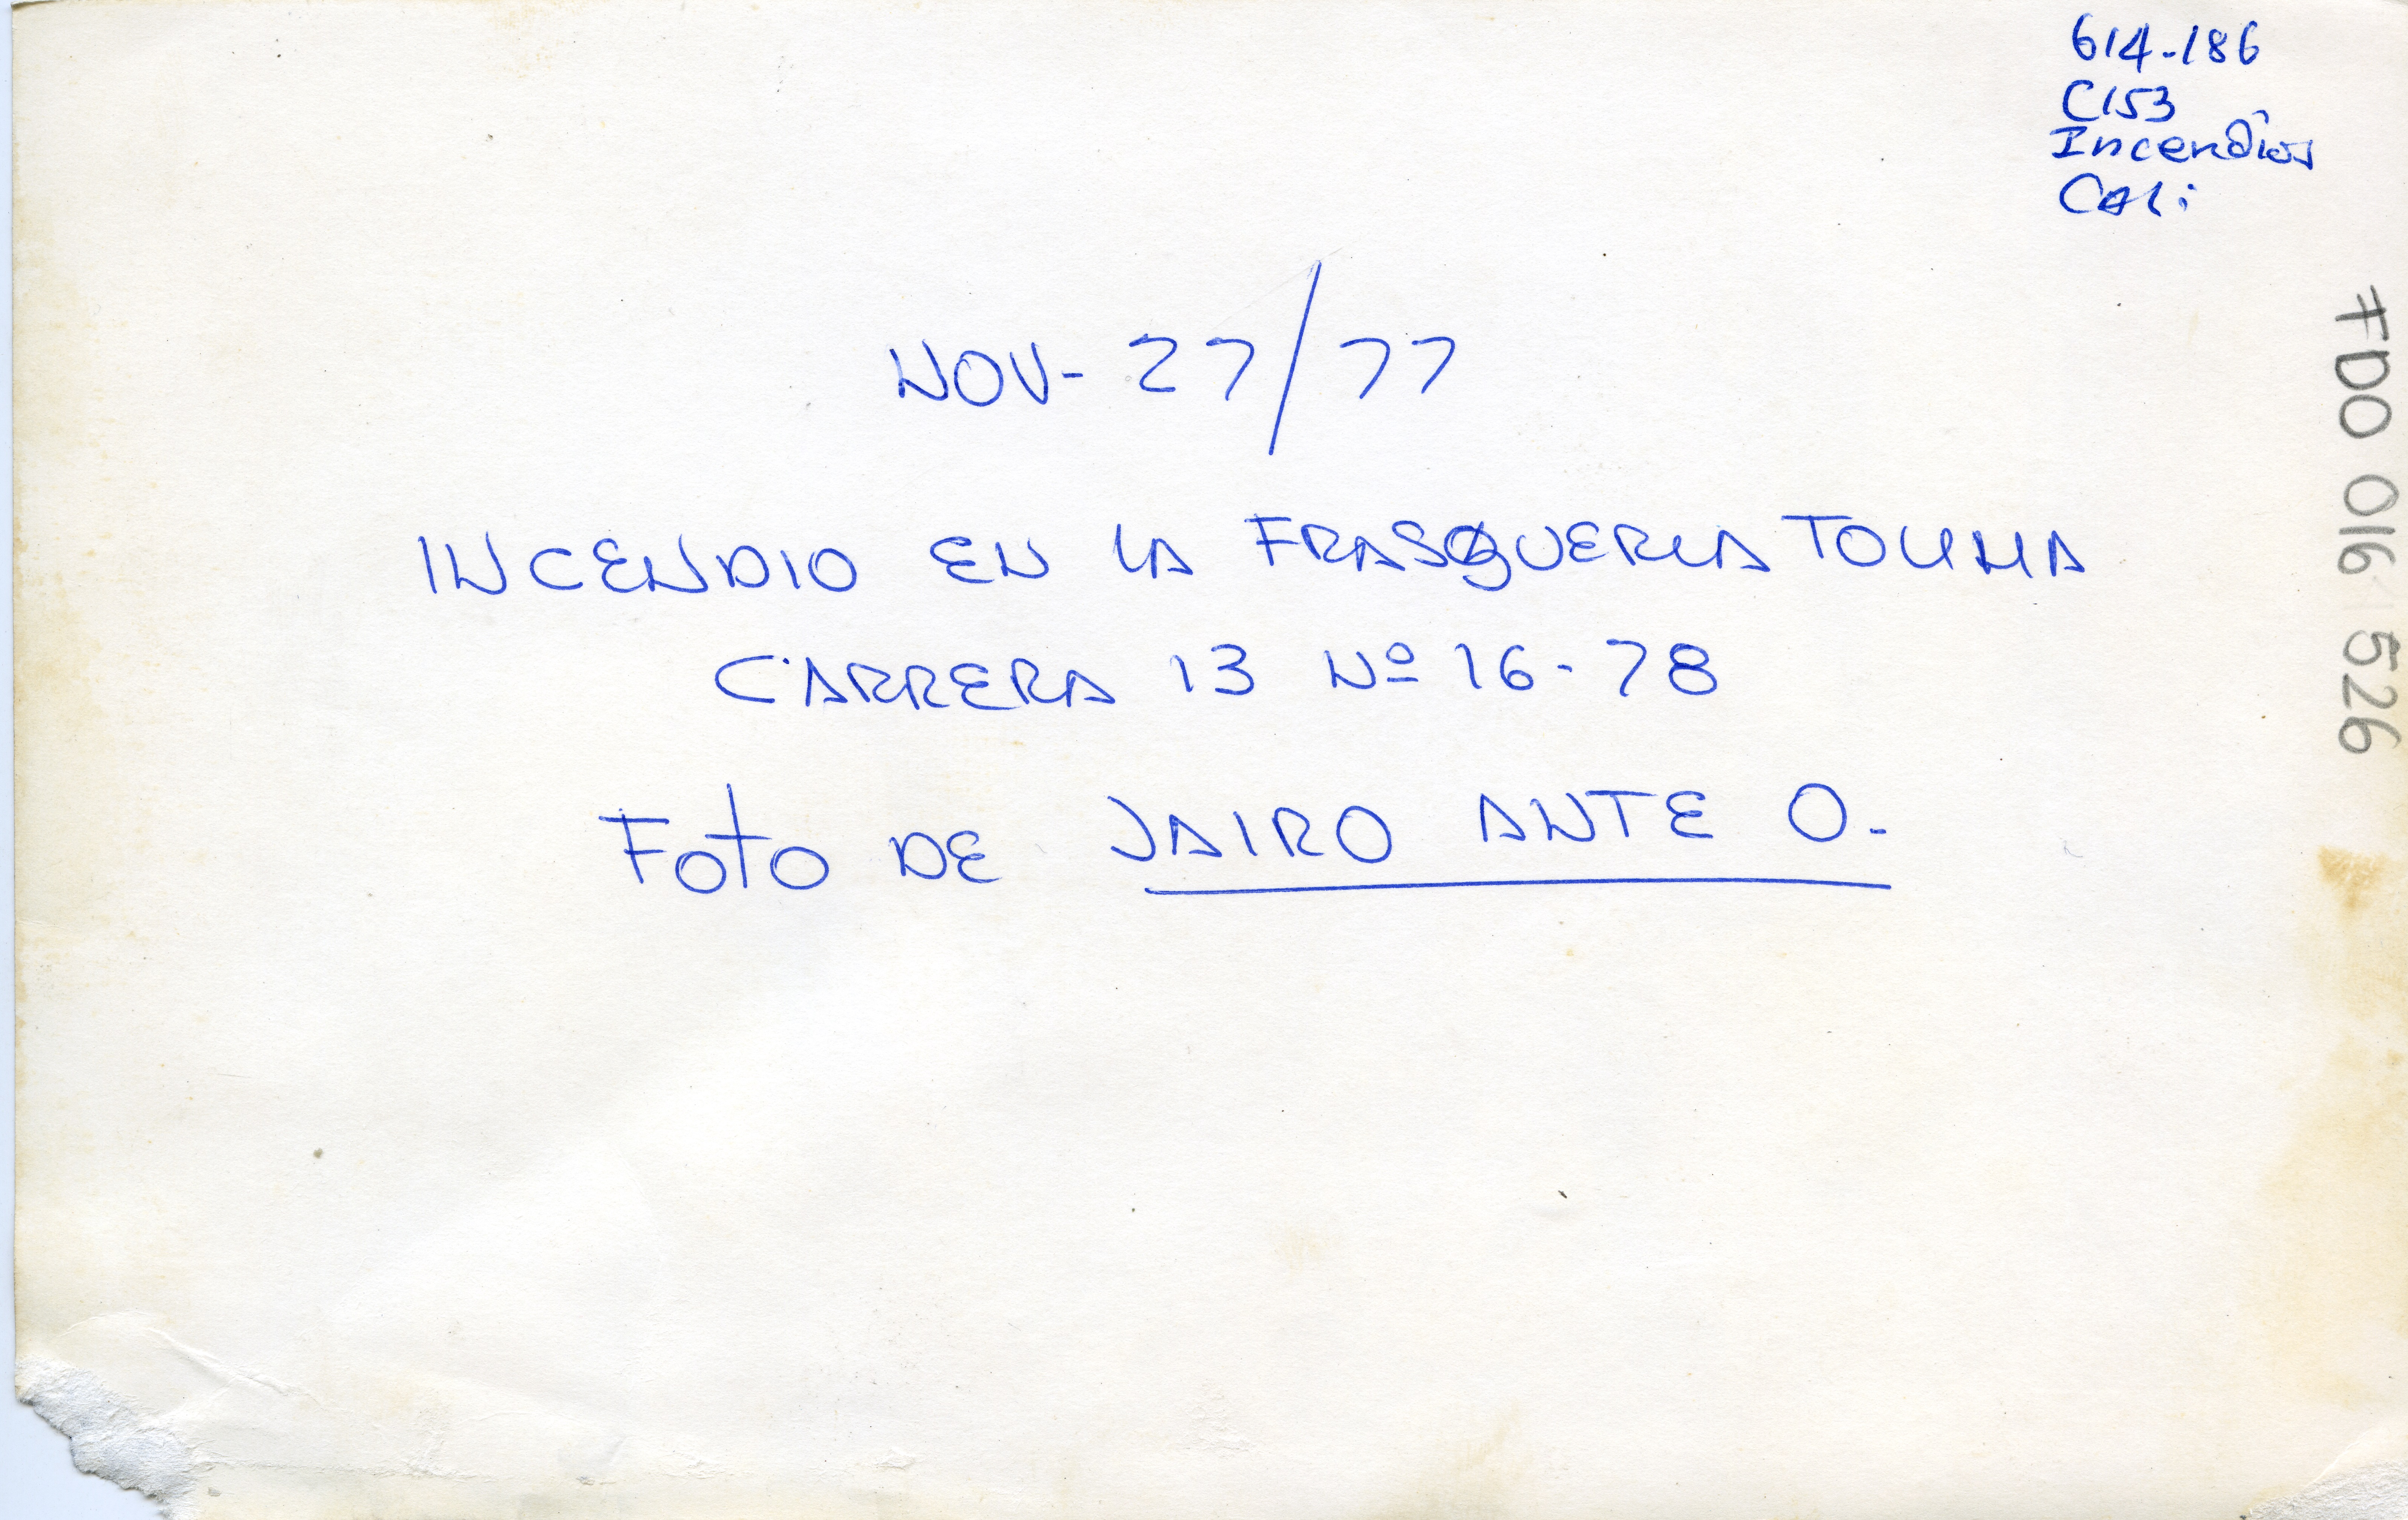 614-186
C153
Incendios
Cali
NOV- 27/77
INCENDIO EN LA FRASQUERIA TOLIMA
CARRERA 13 Nº 16-78
Foto DE JAIRO ANTE O.
FDO 016 1526